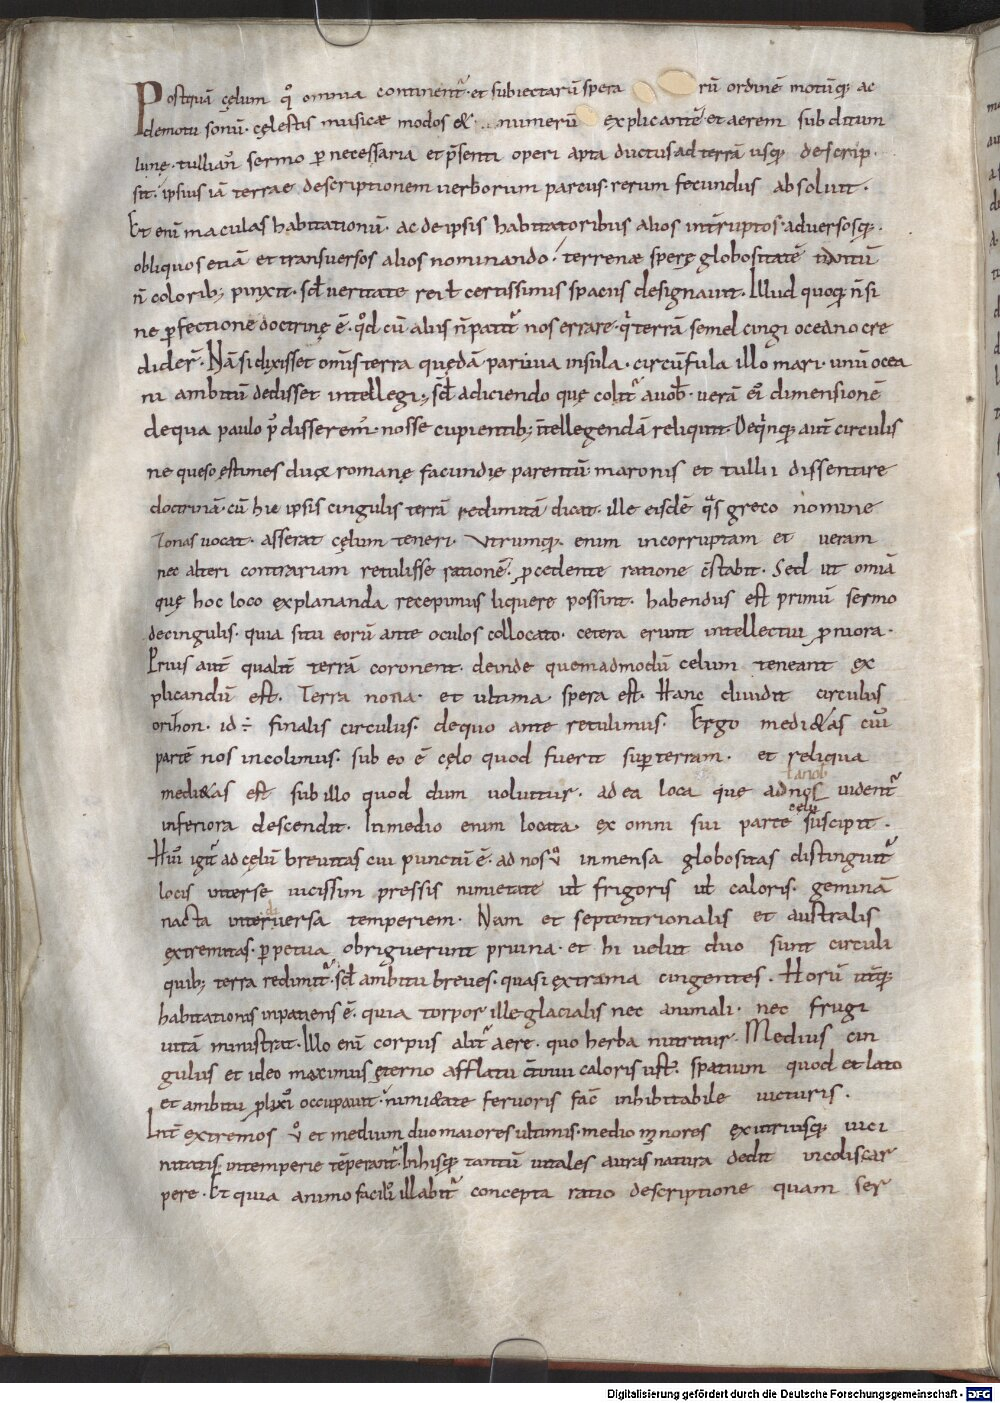 Postquā cęlum q̊ omnia continent᷑ et subiectarū spera rū ordinē motūq; ac
demotu sonū. cęlestis musicæ modos & numerū explicantē et aerem subditum
lunę. tullian᷒ sermo p necessaria et p̄senti operi apta ductus ad terrā usq; descrip.
sit. ipsius iā terrae descriptionem uerborum parcus. rerum fecundus absoluit.
Et eni maculas habitationū. ac de ipsis habitatoribus alios int̄ruptos. aduersosq;.
obliquos etiā et transuersos alios nominando. terrenæ sperę globositatē
n̄ colorib; pinxit. sed ueritate rei certissimis spaciis designauit. Illud quoq; n̄ si
ne pfectione doctrinę ē. qd cū aliis n̄ patit᷑ nos errare. q terrā semel cingi oceano cre
dider̄. Nā si dixisset omīs terra quędā parua insula. circūfula illo mari. unū ocea
ni ambitū dedisset intellegi. sed adiciendo quę colit᷑ a uob. uerā ei dimensionē
de qua paulo p᷒ disserem᷒. nosse cupientib; intellegendā reliquit. De quinq; aut circulis
ne queso ęstimes duæ romanę facundię parentū maronis et tullii dissentire
doctrinā. cū hic ipsis cingulis terrā redimitā dicat. ille eisdē q̊s greco nomine
zonas uocat. asserat cęlum teneri. Vtrumq; enim incorruptam et ueram
nec alteri contrariam retulisse rationē. pcedente ratione c̄stabit. Sed ut omīa
quę hoc loco explananda recepimus liquere possint. habendus est primū sermo
de cingulis. quia situ eorū ante oculos collocato. cetera erunt intellectui proniora.
Prius aut qualit terrā coronent. deinde quemadmodū celum teneant ex
plicandū est. Terra nona et ultima spera est. Hanc diuidit circulus
orizon. id ÷ finalis circulus. de quo ante retulimus. Ergo medi&as cui᷒
partē nos incolimus. sub eo ē cęlo quod fuerit sup terram. et reliqua
medi&as est sub illo quod dum uoluitur. ad ea loca que ad nos uident᷑
inferiora descendit. In medio enim locata ex omni sui parte celū suscipit.
Hui᷒ igit᷑ ad cęlū breuitas cui punctū ē. ad nos u inmensa globositas distinguit᷑
locis interse uicissim pressis nimietate ut frigoris ut caloris. geminā
nacta interuersa temperiem. Nam et septentrionalis et australis
extremitas. ppetua obriguerunt pruina. et hi uelut duo sunt circuli
quib; terra redimit᷑. sed ambitu breues. quasi extrama cingentes. Horū ut̄q;
habitationis inpatiens ē. quia torpor ille glacialis nec animali. nec frugi
uitā ministrat. Illo eni corpus alit᷑ aere. quo herba nutritur. Medius cin
gulus et ideo maximus ęterno afflatu c̄tinui caloris ust᷒. spatium quod et lato
et ambitu plixi᷒ occupauit. nimi&ate feruoris fac inhibitabile uicturis.
Int extremos u et medium duo maiores ultimis. medio minores ex utriusq; uici
nitatis. intemperie tēperant᷑. In hisq; tantū uitales auras natura dedit incolis car
pere. Et quia animo facili᷒ illabit᷑ concepta ratio descriptione quam ser